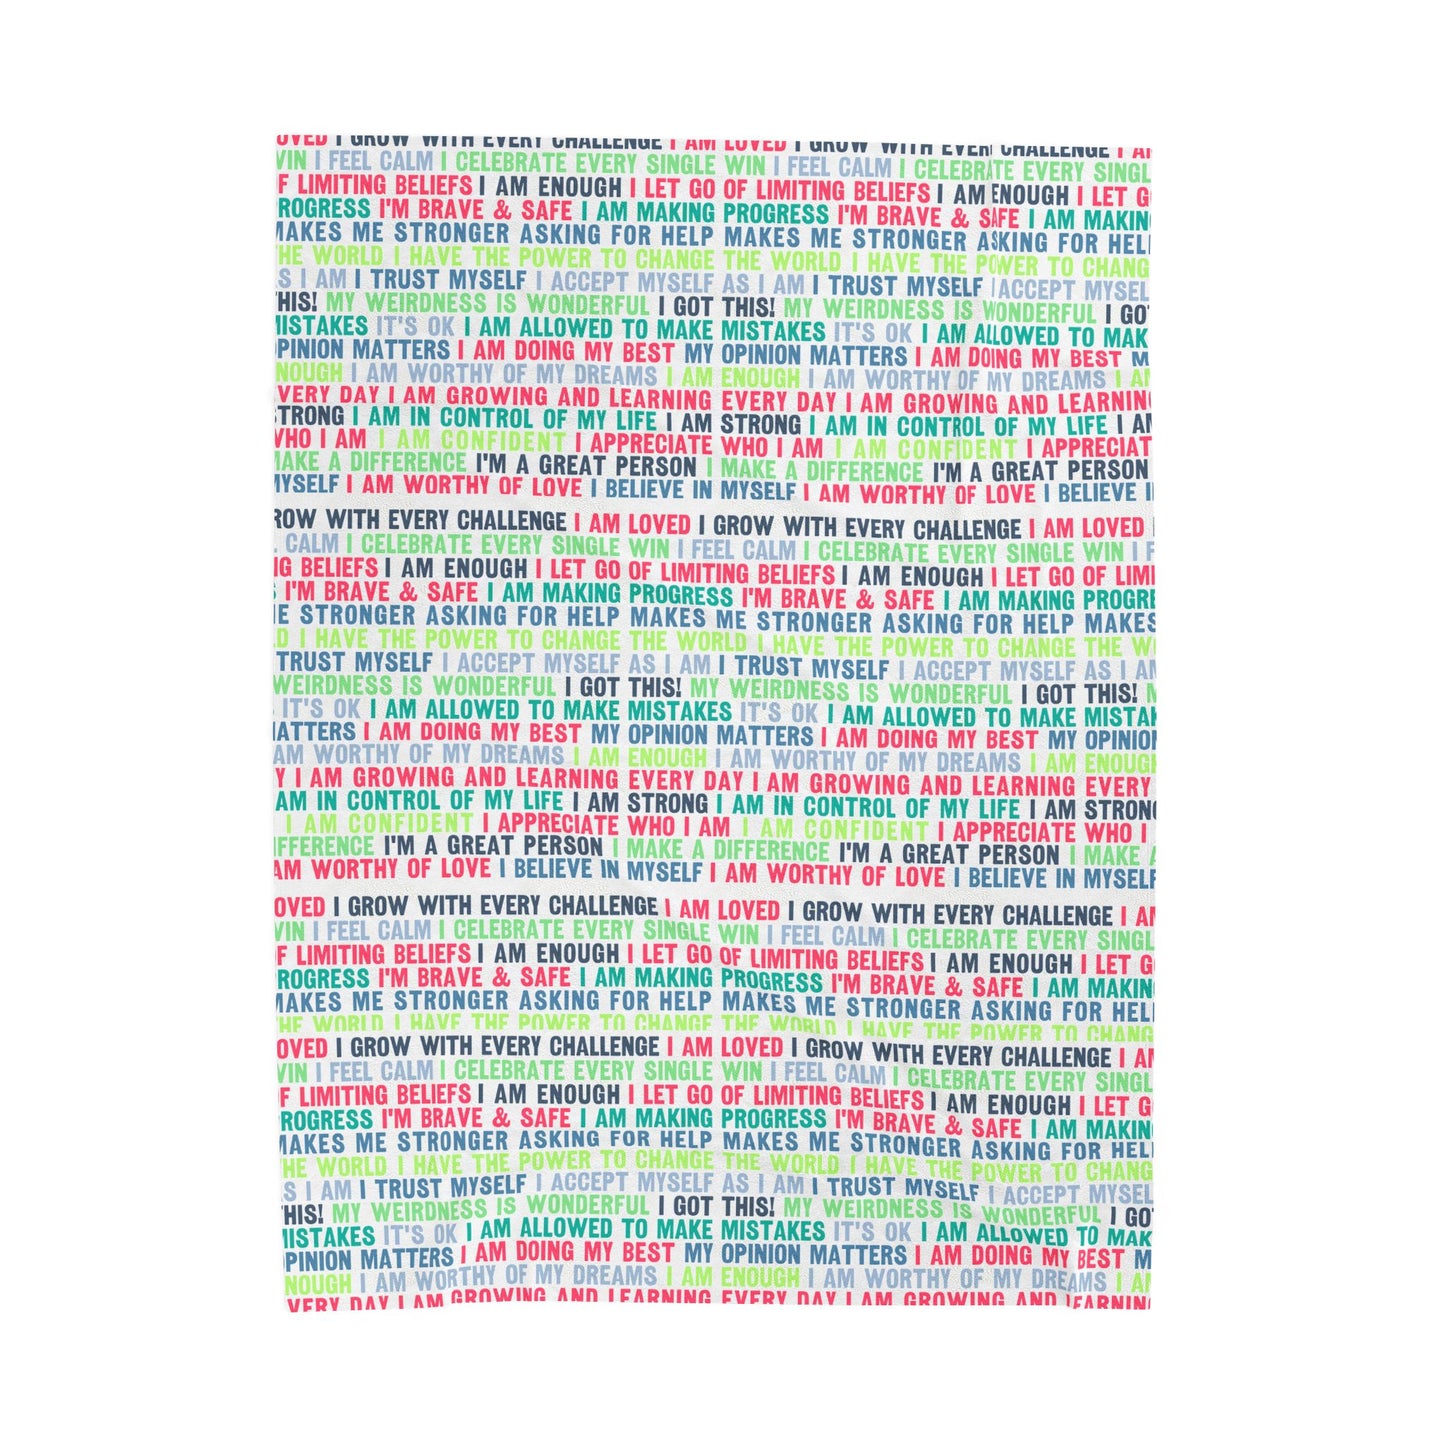 LOVED I GROW WITH EVERY CHALLENGE I AM LOVED I GROW WITH EVERY CHALLENGE I AM
WIN I FEEL CALM I CELEBRATE EVERY SINGLE WIN I FEEL CALM I CELEBRATE EVERY SINGLE
OF LIMITING BELIEFS I AM ENOUGH I LET GO OF LIMITING BELIEFS I AM ENOUGH I LET GO
ROGRESS I'M BRAVE & SAFE I AM MAKING PROGRESS I'M BRAVE & SAFE I AM MAKIN
MAKES ME STRONGER ASKING FOR HELP MAKES ME STRONGER ASKING FOR HEL
HE WORLD I HAVE THE POWER TO CHANGE THE WORLD I HAVE THE POWER TO CHANG
S I AM I TRUST MYSELF I ACCEPT MYSELF AS I AM I TRUST MYSELF I ACCEPT MYSEL
THIS! MY WEIRDNESS IS WONDERFUL I GOT THIS! MY WEIRDNESS IS WONDERFUL I GO
MISTAKES IT'S OK I AM ALLOWED TO MAKE MISTAKES IT'S OK I AM ALLOWED TO MAK
PINION MATTERS I AM DOING MY BEST MY OPINION MATTERS I AM DOING MY BEST M
NOUGH I AM WORTHY OF MY DREAMS I AM ENOUGH I AM WORTHY OF MY DREAMS I A
VERY DAY I AM GROWING AND LEARNING EVERY DAY I AM GROWING AND LEARNIN
STRONG I AM IN CONTROL OF MY LIFE I AM STRONG I AM IN CONTROL OF MY LIFE I A
WHO I AM I AM CONFIDENT I APPRECIATE WHO I AM I AM CONFIDENT I APPRECIAT
MAKE A DIFFERENCE I'M A GREAT PERSON I MAKE A DIFFERENCE I'M A GREAT PERSON
MYSELF I AM WORTHY OF LOVE I BELIEVE IN MYSELF I AM WORTHY OF LOVE I BELIEVE I
ROW WITH EVERY CHALLENGE I AM LOVED I GROW WITH EVERY CHALLENGE I AM LOVED
CALM I CELEBRATE EVERY SINGLE WIN I FEEL CALM I CELEBRATE EVERY SINGLE WIN I F
G BELIEFS I AM ENOUGH I LET GO OF LIMITING BELIEFS I AM ENOUGH I LET GO OF LIMI
I'M BRAVE & SAFE I AM MAKING PROGRESS I'M BRAVE & SAFE I AM MAKING PROGRE
E STRONGER ASKING FOR HELP MAKES ME STRONGER ASKING FOR HELP MAKES
D I HAVE THE POWER TO CHANGE THE WORLD I HAVE THE POWER TO CHANGE THE W
TRUST MYSELF I ACCEPT MYSELF AS I AM I TRUST MYSELF I ACCEPT MYSELF AS I AM
WEIRDNESS IS WONDERFUL I GOT THIS! MY WEIRDNESS IS WONDERFUL I GOT THIS!
IT'S OK I AM ALLOWED TO MAKE MISTAKES IT'S OK I AM ALLOWED TO MAKE MISTAK
ATTERS I AM DOING MY BEST MY OPINION MATTERS I AM DOING MY BEST MY OPINIO
AM WORTHY OF MY DREAMS I AM ENOUGH I AM WORTHY OF MY DREAMS I AM ENOUGH
Y I AM GROWING AND LEARNING EVERY DAY I AM GROWING AND LEARNING EVERY
AM IN CONTROL OF MY LIFE I AM STRONG I AM IN CONTROL OF MY LIFE I AM STRONG
I AM CONFIDENT I APPRECIATE WHO I AM I AM CONFIDENT I APPRECIATE WHO I
IFFERENCE I'M A GREAT PERSON I MAKE A DIFFERENCE I'M A GREAT PERSON I MAKE A
AM WORTHY OF LOVE I BELIEVE IN MYSELF I AM WORTHY OF LOVE I BELIEVE IN MYSELF
OVED I GROW WITH EVERY CHALLENGE I AM LOVED I GROW WITH EVERY CHALLENGE I AM
WIN I FEEL CALM I CELEBRATE EVERY SINGLE WIN I FEEL CALM I CELEBRATE EVERY SINGL
OF LIMITING BELIEFS I AM ENOUGH I LET GO OF LIMITING BELIEFS I AM ENOUGH I LET G
ROGRESS I'M BRAVE & SAFE I AM MAKING PROGRESS I'M BRAVE & SAFE I AM MAKIN
MAKES ME STRONGER ASKING FOR HELP MAKES ME STRONGER ASKING FOR HEL
HE WORLD I HAVE THE POWER TO CHANGE THE WORLD I HAVE THE POWER TO CHANG
OVED I GROW WITH EVERY CHALLENGE I AM LOVED I GROW WITH EVERY CHALLENGE I AM
WIN I FEEL CALM I CELEBRATE EVERY SINGLE WIN I FEEL CALM I CELEBRATE EVERY SINGL
F LIMITING BELIEFS I AM ENOUGH I LET GO OF LIMITING BELIEFS I AM ENOUGH I LET G
ROGRESS I'M BRAVE & SAFE I AM MAKING PROGRESS I'M BRAVE & SAFE I AM MAKIN
MAKES ME STRONGER ASKING FOR HELP MAKES ME STRONGER ASKING FOR HEL
HE WORLD I HAVE THE POWER TO CHANGE THE WORLD I HAVE THE POWER TO CHANG
S I AM I TRUST MYSELF I ACCEPT MYSELF AS I AM I TRUST MYSELF I ACCEPT MYSEL
HIS! MY WEIRDNESS IS WONDERFUL I GOT THIS! MY WEIRDNESS IS WONDERFUL I GO
MISTAKES IT'S OK I AM ALLOWED TO MAKE MISTAKES IT'S OK I AM ALLOWED TO MAK
OPINION MATTERS I AM DOING MY BEST MY OPINION MATTERS I AM DOING MY BEST M
ENOUGH I AM WORTHY OF MY DREAMS I AM ENOUGH I AM WORTHY OF MY DREAMS I A
EVERY DAY I AM GROWING AND LEARNING EVERY DAY I AM GROWING AND LEARNIN